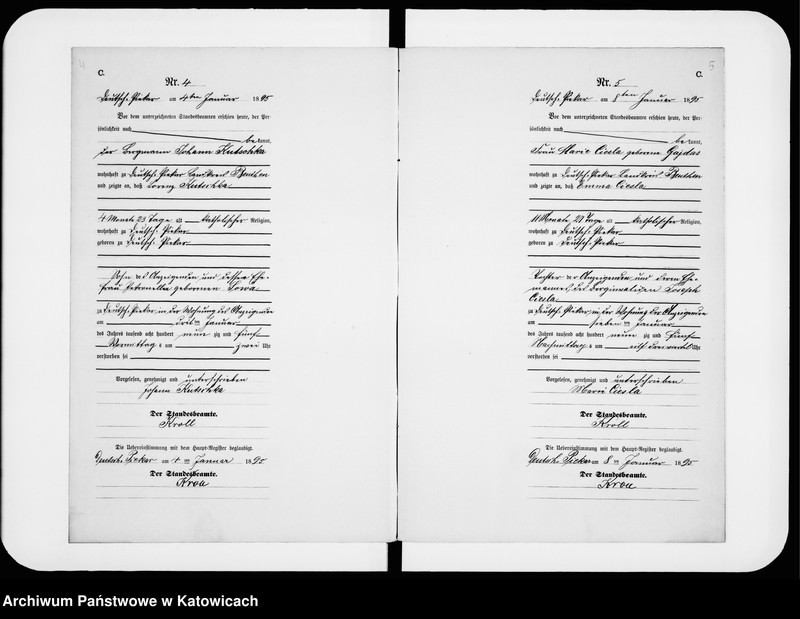 4
C.
Nr. 4
Deutsch-Piekar am 4ten Januar 1895
Vor dem unterzeichneten Standesbeamten erschien heute, der Per-
sönlichkeit nach
be kannt,
der Bergmann Johann Kutschka
wohnhaft zu Deutsch-Piekar Landkreis Beuthen
und zeigte an, daß Lorenz Kutschka
4 Monate 23 Tage alt katholischer Religion,
wohnhaft zu Deutsch-Piekar
geboren zu Deutsch-Piekar
Sohn des Anzeigenden und dessen Ehe-
frau Petronella geborenen
zu Deutsch-Piekar in der Wohnung des Anzeigenden
am dritten Januar
des Jahres tausend acht hundert neun zig und fünf
Vormittag s um zwei Uhr
verstorben sei
Vorgelesen, genehmigt und unterschrieben
Johann Kutschka
Der Standesbeamte.
Kroll
Die Uebereinstimmung mit dem Haupt-Register beglaubigt.
Deutsch-Piekar am 4 ten Januar 1895
Der Standesbeamte.
Kroll
5
C.
Nr. 5
Deutsch-Piekar am 8ten Januar 1895
Vor dem unterzeichneten Standesbeamten erschien heute, der Per-
sönlichkeit nach
be kannt,
Frau Marie Ciesla geborene Gajdas
wohnhaft zu Deutsch-Piekar Landkreis Beuthen
und zeigte an, daß Emma Ciesla
11 Monate 27 Tage alt katholischer Religion,
wohnhaft zu Deutsch-Piekar
geboren zu Deutsch-Piekar
Tochter der Anzeigenden und deren Ehe-
mannes, des Berginvaliden Joseph
Ciesla
zu Deutsch-Piekar in der Wohnung der Anzeigenden
am sieben ten Januar
des Jahres tausend acht hundert neun zig und fünf
Nachmittag s um elf dreiviertel Uhr
verstorben sei
Vorgelesen, genehmigt und unterschrieben
Marie Ciesla
Der Standesbeamte.
Kroll
Die Uebereinstimmung mit dem Haupt-Register beglaubigt.
Deutsch-Piekar am 8 ten Januar 1895
Der Standesbeamte.
Kroll
Archiwum Państwowe w Katowicach